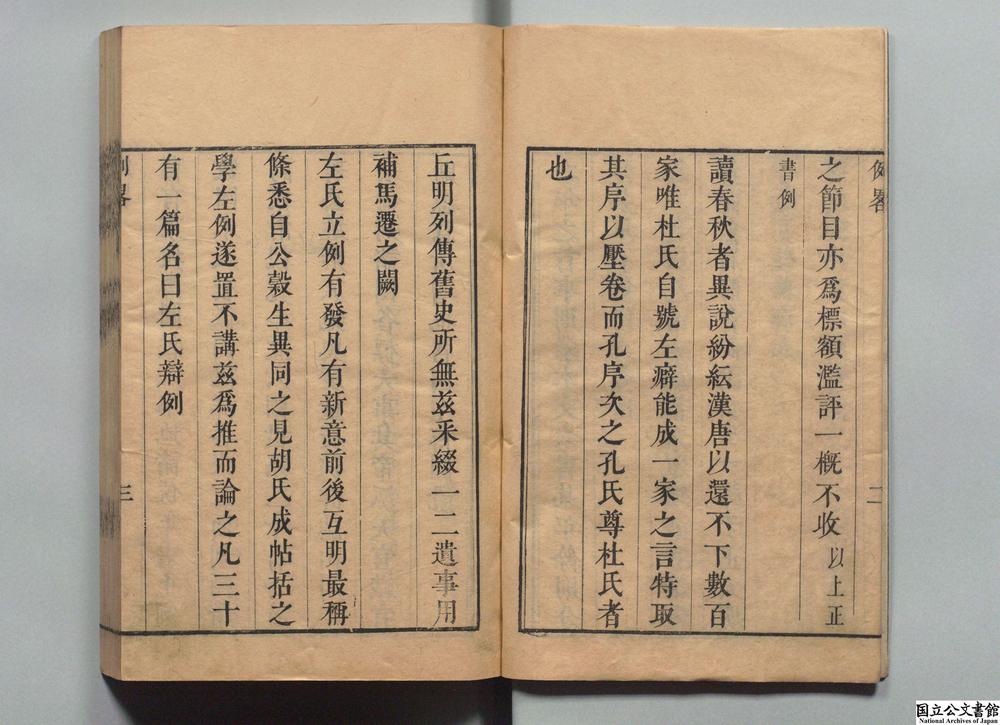 例畧
二
之節目亦爲標額濫評一概不收以上正
書例
讀春秋者異說紛紜漢唐以還不下數百
家唯杜氏自號左癖能成一家之言特取
其序以壓卷而孔序次之孔氏尊杜氏者
也
丘明列傳舊史所無茲采綴一二遺事用
補馬遷之闕
左氏立例有發凡有新意前後互明最稱
條悉自公穀生異同之見胡氏成帖括之
學左例遂置不講茲爲推而論之凡三十
有一篇名曰左氏辯例
例畧
三
国立公文書館
National Archives of Japan